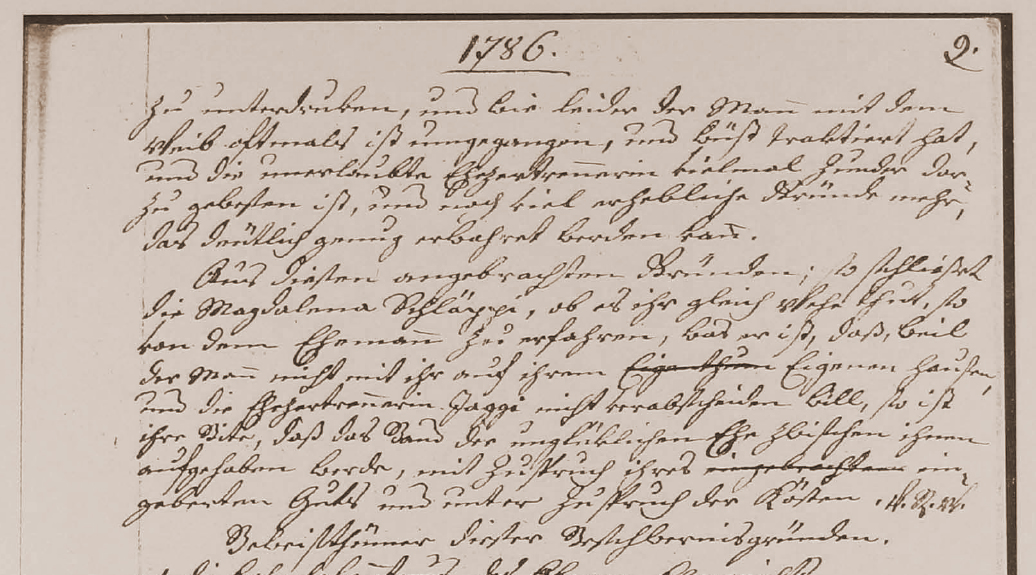 1786. 2.
zu unterdruken, und wie leider der Mann mit dem
Weib oftmals ist umgegangen, und wüst traktiert hat,
und die unerlaubte Ehezertrennerin vielmal Zunder dar-
zu gewesen ist, und noch viel erhebliche Gründe mehr,
das deütlich genug erwahret werden kann.
Aus diesen angebrachten Gründen, so schliesst
die Magdalena Schläppi, ob es ihr gleich Wehe thut, so
von dem Ehemann zu erfahren, was er ist, daß, weil
der Mann nicht mit ihr auf ihrem Eigenthum Eigenen hausen,
und die Ehezertrennerin Jaggi nicht verabscheiden will, so ist
ihre Bite, daß das Band der unglüklichen Ehe zwischen ihnen
aufgehaben werde, mit Zuspruch ihres eingebrachten ein-
gekerten Guts und unter Zuspruch der Kösten
Beweisthümer dieser Beschwernisgründen.